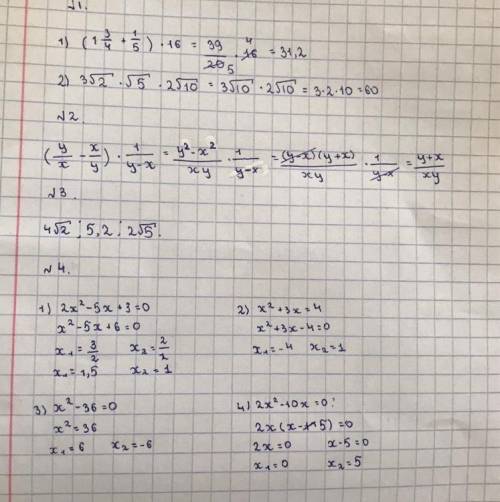 №1.
1) (1 3/4 + 1/5) · 16 = 39/20 5 · 16 4 = 31,2
2) 3√2 · √5 · 2√10 = 3√10 · 2√10 = 3·2·10 = 60
№2.
(y/x - x/y) · 1/(y-x) = (y²-x²)/(xy) · 1/(y-x) = ((y-x)(y+x))/(xy) · 1/(y-x) = (y+x)/(xy)
№3
4√2 ; 5,2 ; 2√5.
№4.
1) 2x²-5x+3=0
x²-5x+6=0
x₁=3/2 x₂=2/2
x₁=1,5 x₂=1
2) x²+3x=4
x²+3x-4=0
x₁=-4 x₂=1
3) x²-36=0
x²=36
x₁=6 x₂=-6
4) 2x²-10x=0
2x(x-5)=0
2x=0 x-5=0
x₁=0 x₂=5